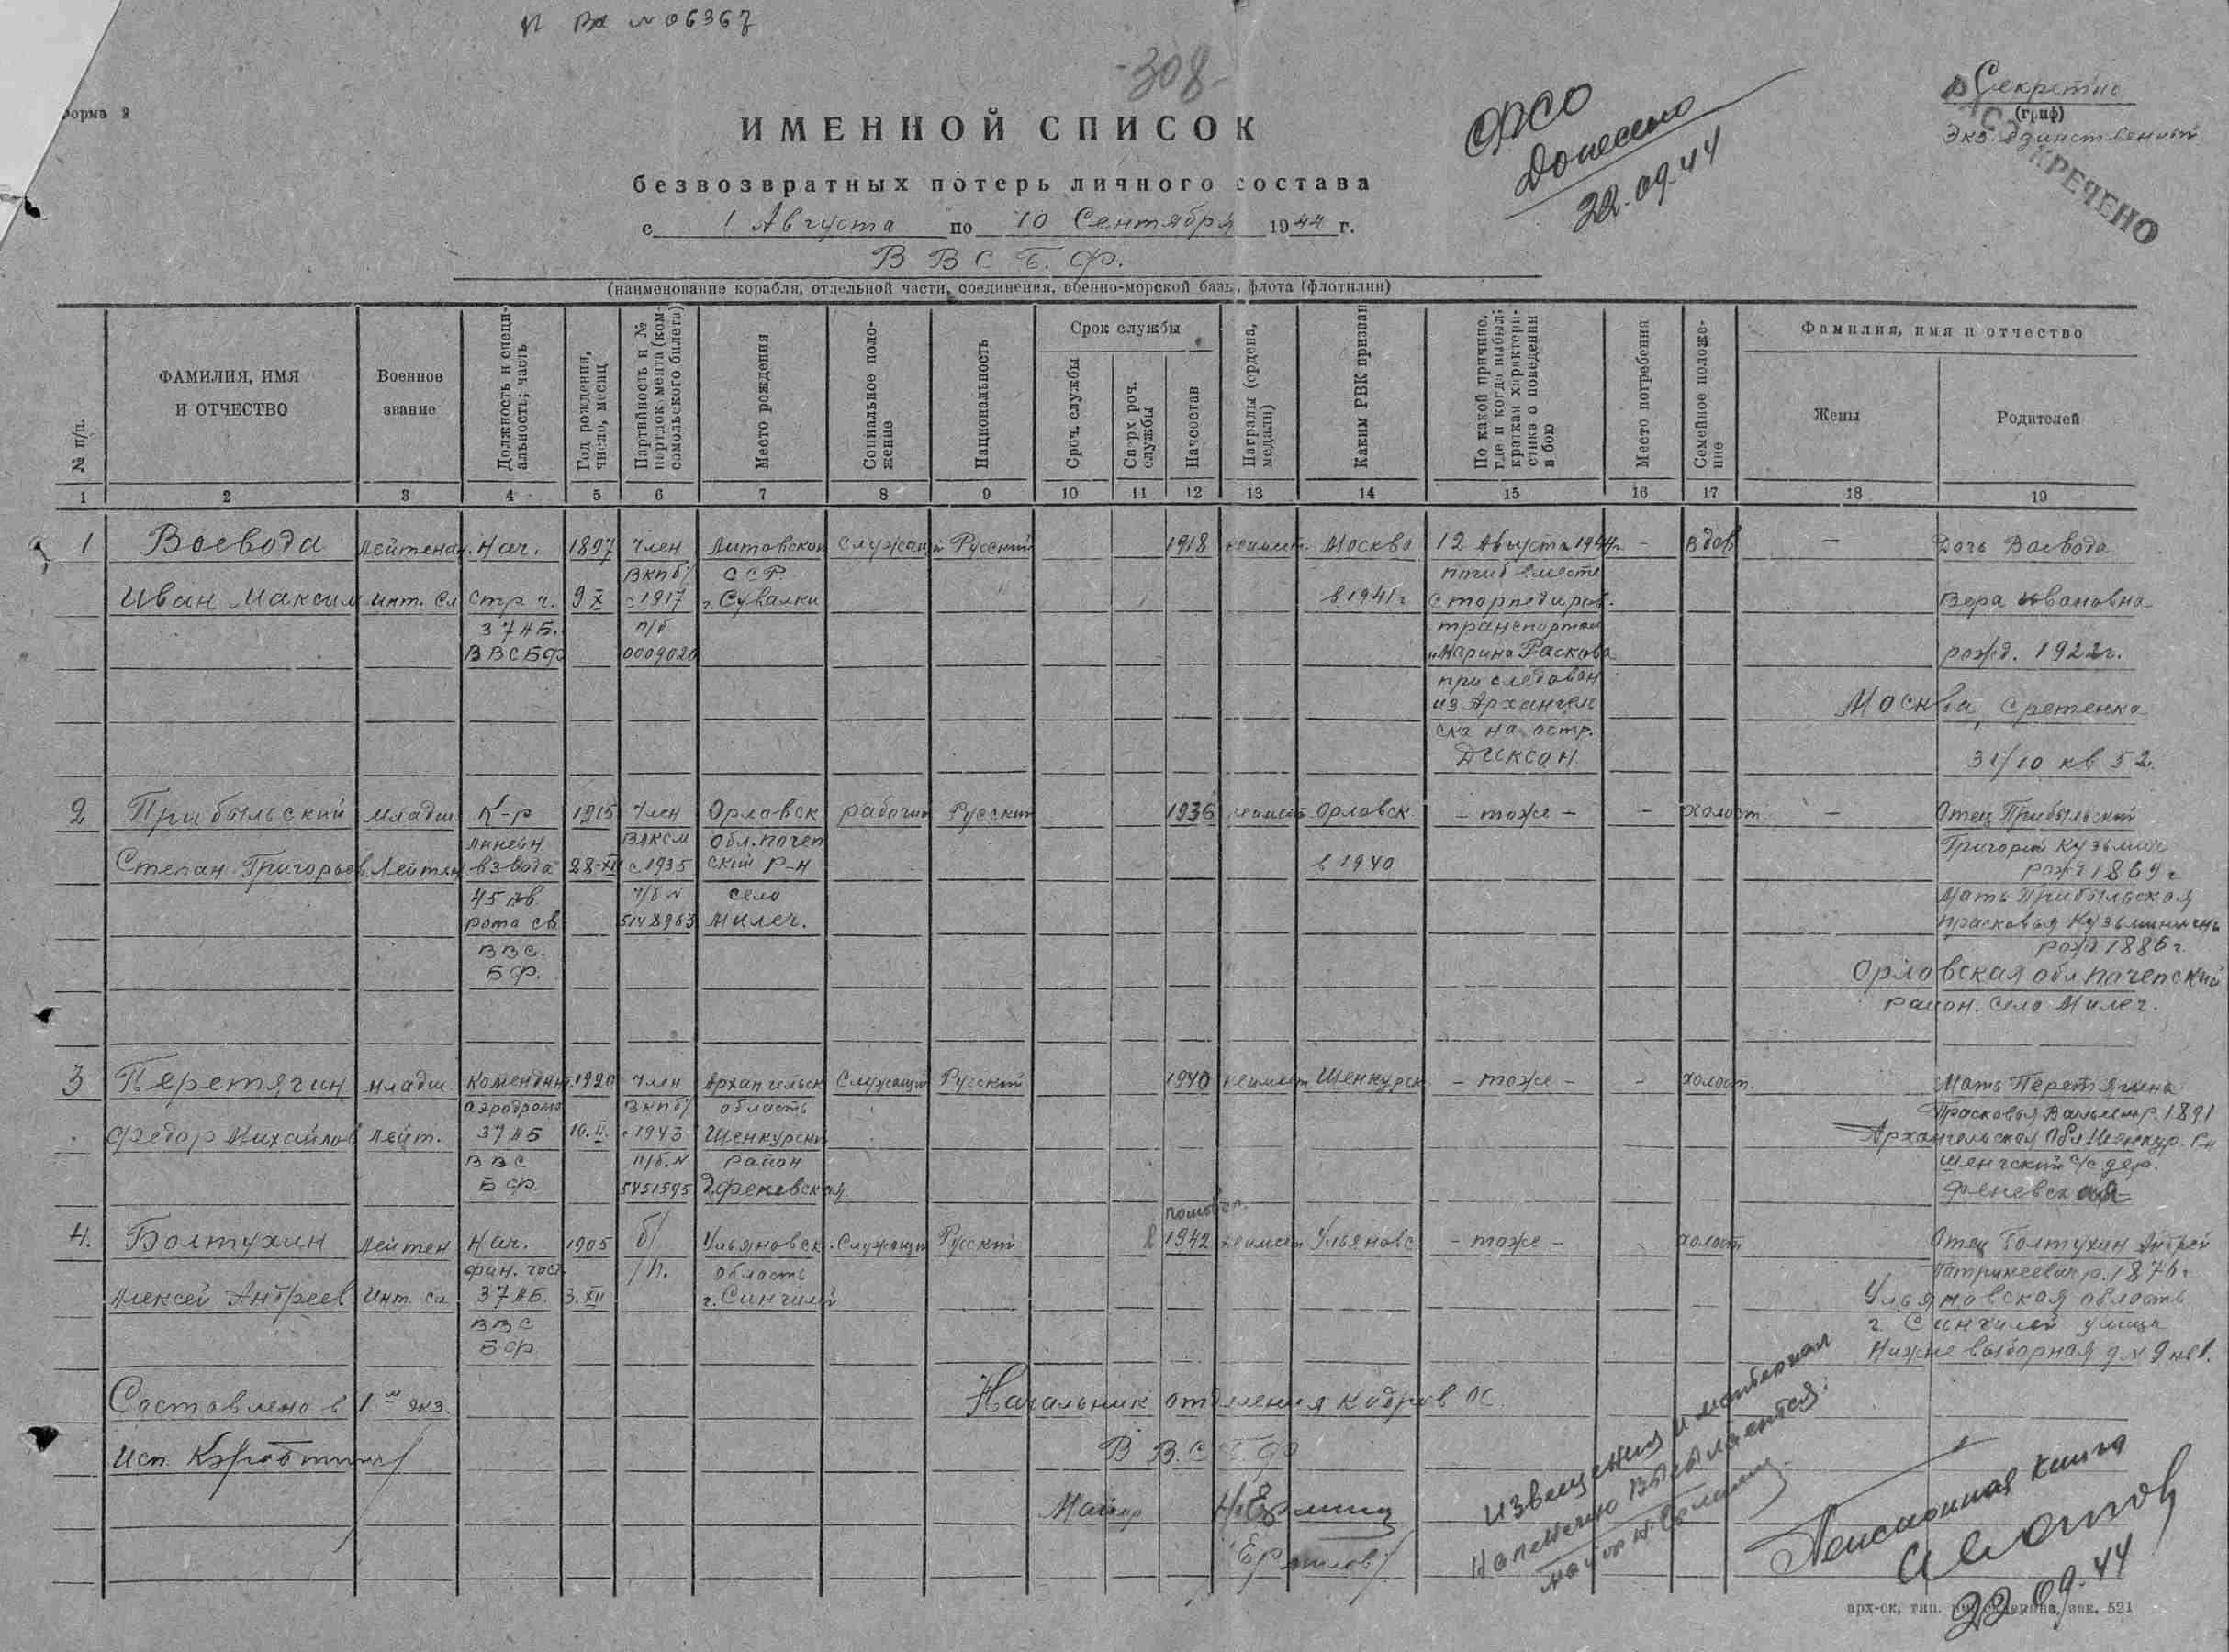 Вх № 06367
-308-
Форма 2
ИМЕННОЙ СПИСОК
безвозвратных потерь личного состава
с 1 Августа по 10 Сентября 1944 г.
В В С Б. Ф.
(наименование корабля, отдельной части, соединения, военно-морской базы, флота (флотилии)
ОРСО
Донесено
22.09.44
Секретно
(гриф)
Экз. единственный
РАССЕКРЕЧЕНО
№ п/п.
ФАМИЛИЯ, ИМЯ
И ОТЧЕСТВО
Военное
звание
Должность и специ-
альность; часть
Год рождения,
число, месяц
Партийность и №
партдокумента (ком-
сомольского билета)
Место рождения
Социальное поло-
жение
Национальность
Срок службы
Сроч. службы
Сверхсроч.
службы
Начсостав
Награды (ордена,
медали)
Каким РВК призван
По какой причине,
где и когда выбыл;
краткая характери-
стика о поведении
в бою
Место погребения
Семейное положе-
ние
Фамилия, имя и отчество
Жены
Родителей
1 2 3 4 5 6 7 8 9 10 11 12 13 14 15 16 17 18 19
1 Воевода Лейтенан. Нач. 1897 Член Литовской Служащий Русский 1918 неимеет. Москва 12 Августа 1944г. - вдов — Дочь Воевода
ВКПб/ ССР погиб вместе
Иван Максим инт. сл стр ч. 9 X с 1917 г. Сувалки в 1941г с торпедиров. Вера Ивановна
37 АБ. п/б транспортом
ВВС БФ 0009020 "Марина Раскова рожд. 1922г.
при следован
из Архангель Москва, Сретенка
ска на остр.
Диксон 31/10 кв 52.
2 Прибыльский младш. К-р 1915 Член Орловск рабочий Русский 1936 неимеет Орловск. - тоже - - холост. — Отец Прибыльский
линейн. ВЛКСМ обл. почеп Григорий Кузьмич
Степан Григорьев. Лейтен взвода 28-XII с 1935 ский р-н в 1940 рожд 1869г
45 ч/б № село Мать Прибыльская
рота св 5148963 Милеч. Прасковья Кузьминична
ВВС. рожд 1886г.
БФ. Орловская обл. почепский
район. Село Милеч.
3 Перетягин младш. Комендант. 1920 член Архангельск Служащий Русский 1940 неимеет Шенкурск - тоже - - холост. Мать Перетягина
аэродрома ВКПб/ область Прасковья р. 1891
Федор Михайлов Лейт. 37 АБ 10.II. с 1943 Шенкурски Архангельская обл. Шенкур. р-н
ВВС п/б. № район с/с дер.
БФ 5451595 д. Феневская Феневская
4. Болтухин Лейтен Нач. 1905 б/ Ульяновск. Служащи Русский в 1942 неимеет Ульяновс - тоже - холост Отец Болтухин Андрей
фин. част /п. область Патрикеевич р. 1876г
Алексей Андреев Инт. сл 37 АБ. 3. XII г. Сингилей Ульяновская область
ВВС г. Сингилей улица
БФ Нижне выборная д № 9 кв 1.
Составлено в 1 экз. Начальник отделения кадров ОС
Исп. В В. С Б Ф
Майор
/Ермилов/
Извещения и материал
на пенсию высылается.
Пенсионная книга
22.09.44
арх-ск, тип. зак. 521